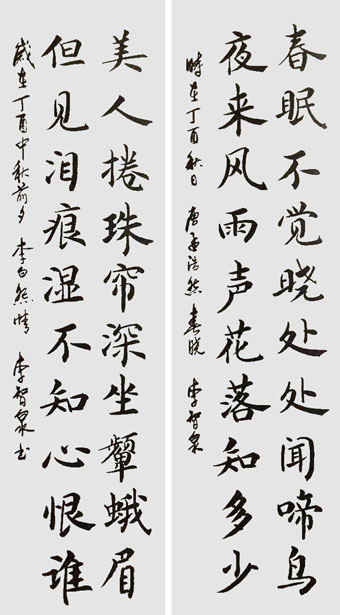 春眠不觉晓处处闻啼鸟
夜来风雨声花落知多少
時在丁酉秋日 唐孟浩然 春晓 李智泉
美人捲珠帘深坐颦蛾眉
但见泪痕湿不知心恨谁
歲在丁酉中秋前夕 李白怨情 李智泉书